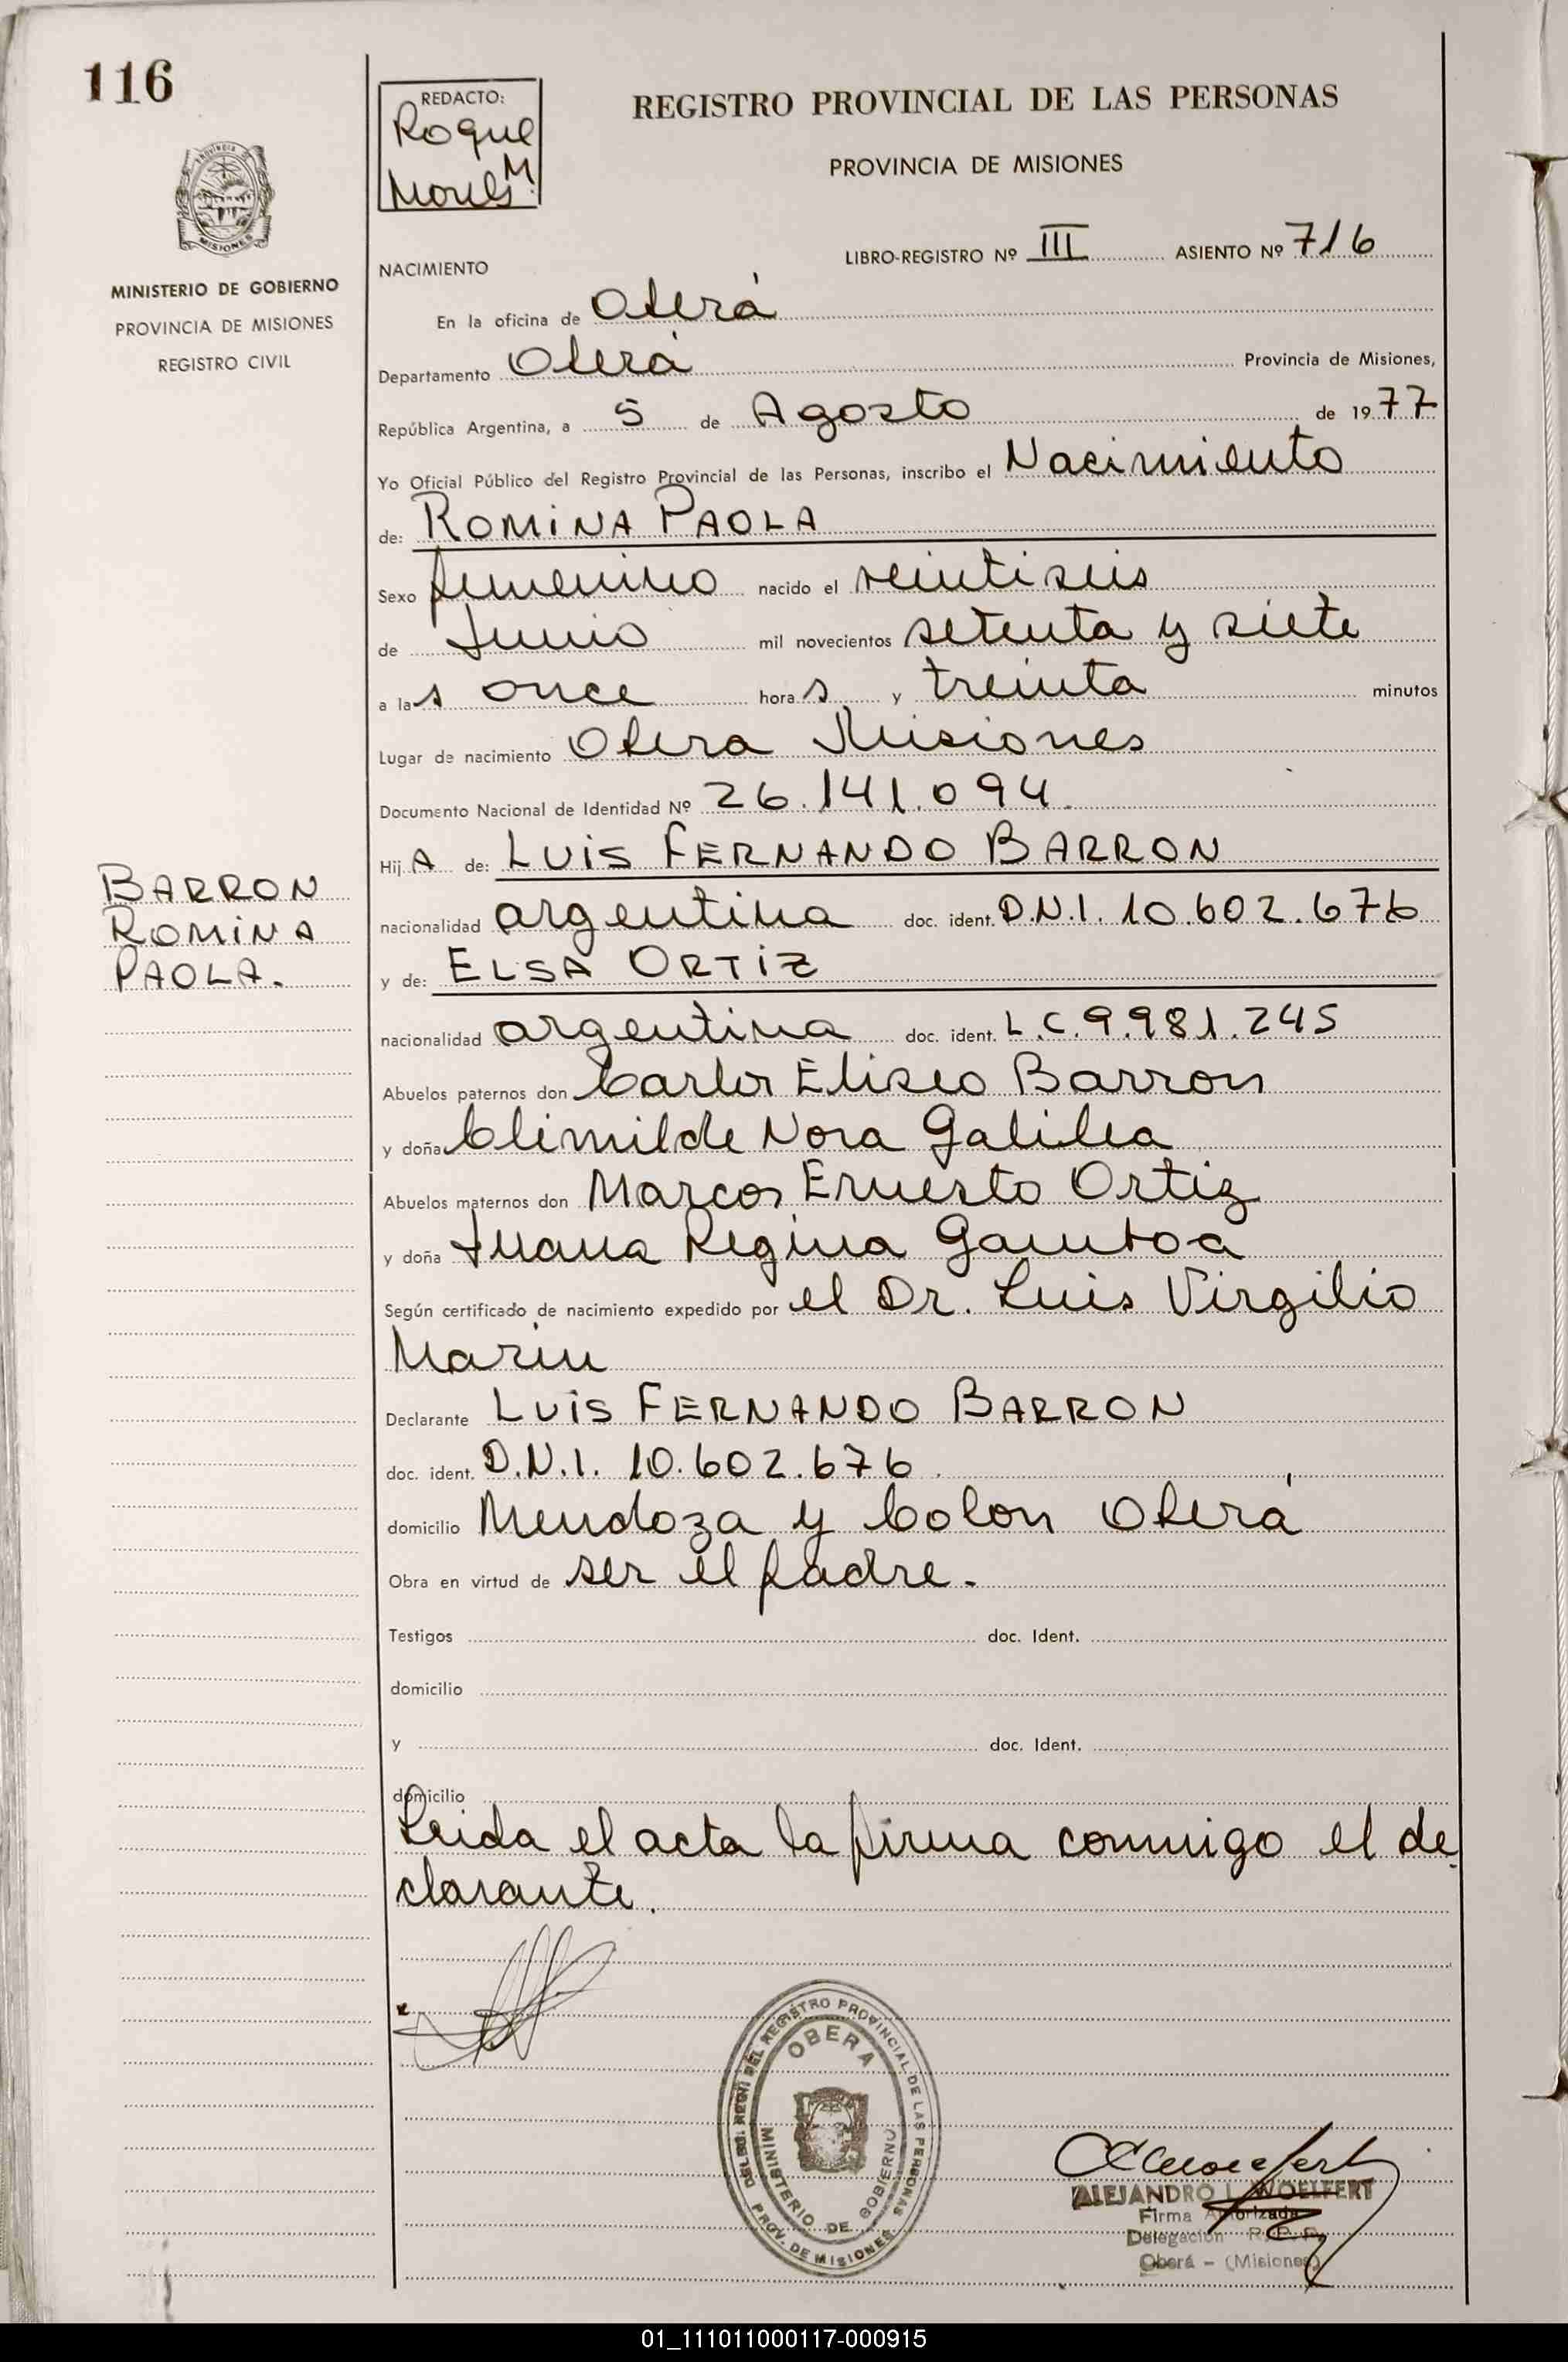 116
REDACTO:
Roque
M.
REGISTRO PROVINCIAL DE LAS PERSONAS
PROVINCIA DE MISIONES
PROVINCIA
MISIONES
MINISTERIO DE GOBIERNO
PROVINCIA DE MISIONES
REGISTRO CIVIL
LIBRO-REGISTRO Nº III ASIENTO Nº 716
NACIMIENTO
En la oficina de Oberá
Departamento Oberá Provincia de Misiones,
República Argentina, a 5 de Agosto de 1977
Yo Oficial Público del Registro Provincial de las Personas, inscribo el Nacimiento
de: ROMINA PAOLA
Sexo femenino nacido el veintiseis
de Junio mil novecientos setenta y siete
a las once horas y treinta minutos
Lugar de nacimiento Obera Misiones
Documento Nacional de Identidad Nº 26.141.094.
HijA de: LUIS FERNANDO BARRON
BARRON
ROMINA
PAOLA.
nacionalidad argentina doc. ident. D.N.I. 10.602.676
y de: ELSA ORTIZ
nacionalidad argentina doc. ident. L.C. 9.981.245
Abuelos paternos don Carlos Eliseo Barron
y doña Climilde Nora Galilea
Abuelos maternos don Marcos Ernesto Ortiz
y doña Juana Regina Gamboa
Según certificado de nacimiento expedido por el Dr. Luis Virgilio
Marin
Declarante LUIS FERNANDO BARRON
doc. ident. D.N.I. 10.602.676.
domicilio Mendoza y Colon Oberá
Obra en virtud de ser el padre.
Testigos doc. Ident.
domicilio
y doc. Ident.
domicilio
Leida el acta la firma conmigo el de
clarante.
DEL REGISTRO PROVINCIAL DE LAS PERSONAS
OBERA
MINISTERIO DE GOBIERNO
PROV. DE MISIONES
ALEJANDRO L. WOELFERT
Firma Autorizada
Delegación R. P. P.
Oberá - (Misiones)
01_111011000117-000915